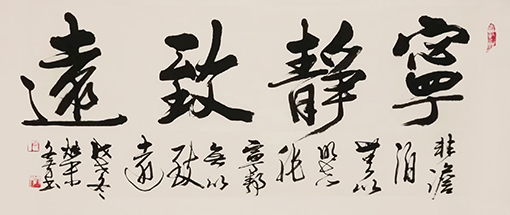 寧靜致遠
非澹
泊
無以
明志
非
寧靜
無以
致
遠